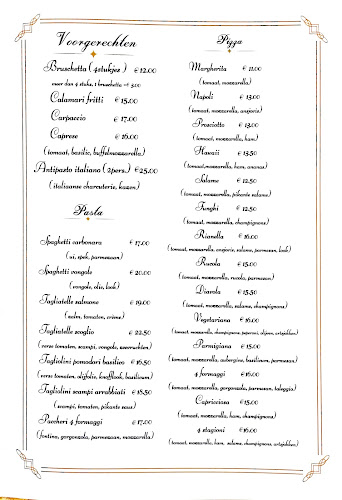 Voorgerechten
Bruschetta (4stukjes) €12.00
meer dan 4 stuks, 1 bruschetta += 3.00
Calamari fritti €15.00
Carpaccio €17.00
Caprese €16.00
(tomaat, basilic, buffelmozzarella)
Antipasto italiano (2pers.) €25.00
(italiaanse charcuterie, kazen)
Pasta
Spaghetti carbonara €17.00
(ui, spek, parmezaan)
Spaghetti vongole €20.00
(vongole, olio, look)
Tagliatelle salmone €19.00
(zalm, tomaten, crème)
Tagliatelle scoglio €22.50
(verse tomaten, scampi, vongole, zeevruchten)
Tagliolini pomodori basilico €16.50
(verse tomaten, olijfolie, knofllook, basilicum)
Tagliolini scampi arrabbiati €18.50
(scampi, tomaten, pikante saus)
Paccheri 4 formaggi €17.00
(fontina, gorgonzola, parmezaan, mozzarella)
Pizza
Margherita €11.00
(tomaat, mozzarella)
Napoli €13.00
(tomaat, mozzarella, ansjovis)
Prosciotto €13.00
(tomaat, mozzarella, ham)
Hawaii €13.50
(tomaat, mozzarella, ham, ananas)
Salame €12.50
(tomaat, mozzarella, pikante salame)
Funghi €12.50
(tomaat, mozzarella, champignons)
Rianella €16.00
(tomaat, mozzarella, ansjovis, salame, parmezaan, look)
Rucola €15.00
(tomaat, mozzarella, rucola, parmezaan)
Diavola €15.50
(tomaat, mozzarella, salame, champignons)
Vegetariana €16.00
(tomaat, mozzarella, champignons, paperoni, olijven, artisjokken)
Parmigiana €15.00
(tomaat, mozzarella, aubergine, basilicum, parmezaan)
4 formaggi €16.00
(tomaat, mozzarella, gorgonzola, parmezaan, taleggio)
Capricciosa €15.00
(tomaat, mozzarella, ham, champignons)
4 stagioni €16.00
(tomaat, mozzarella, ham, salame, champignons, artisjokken)